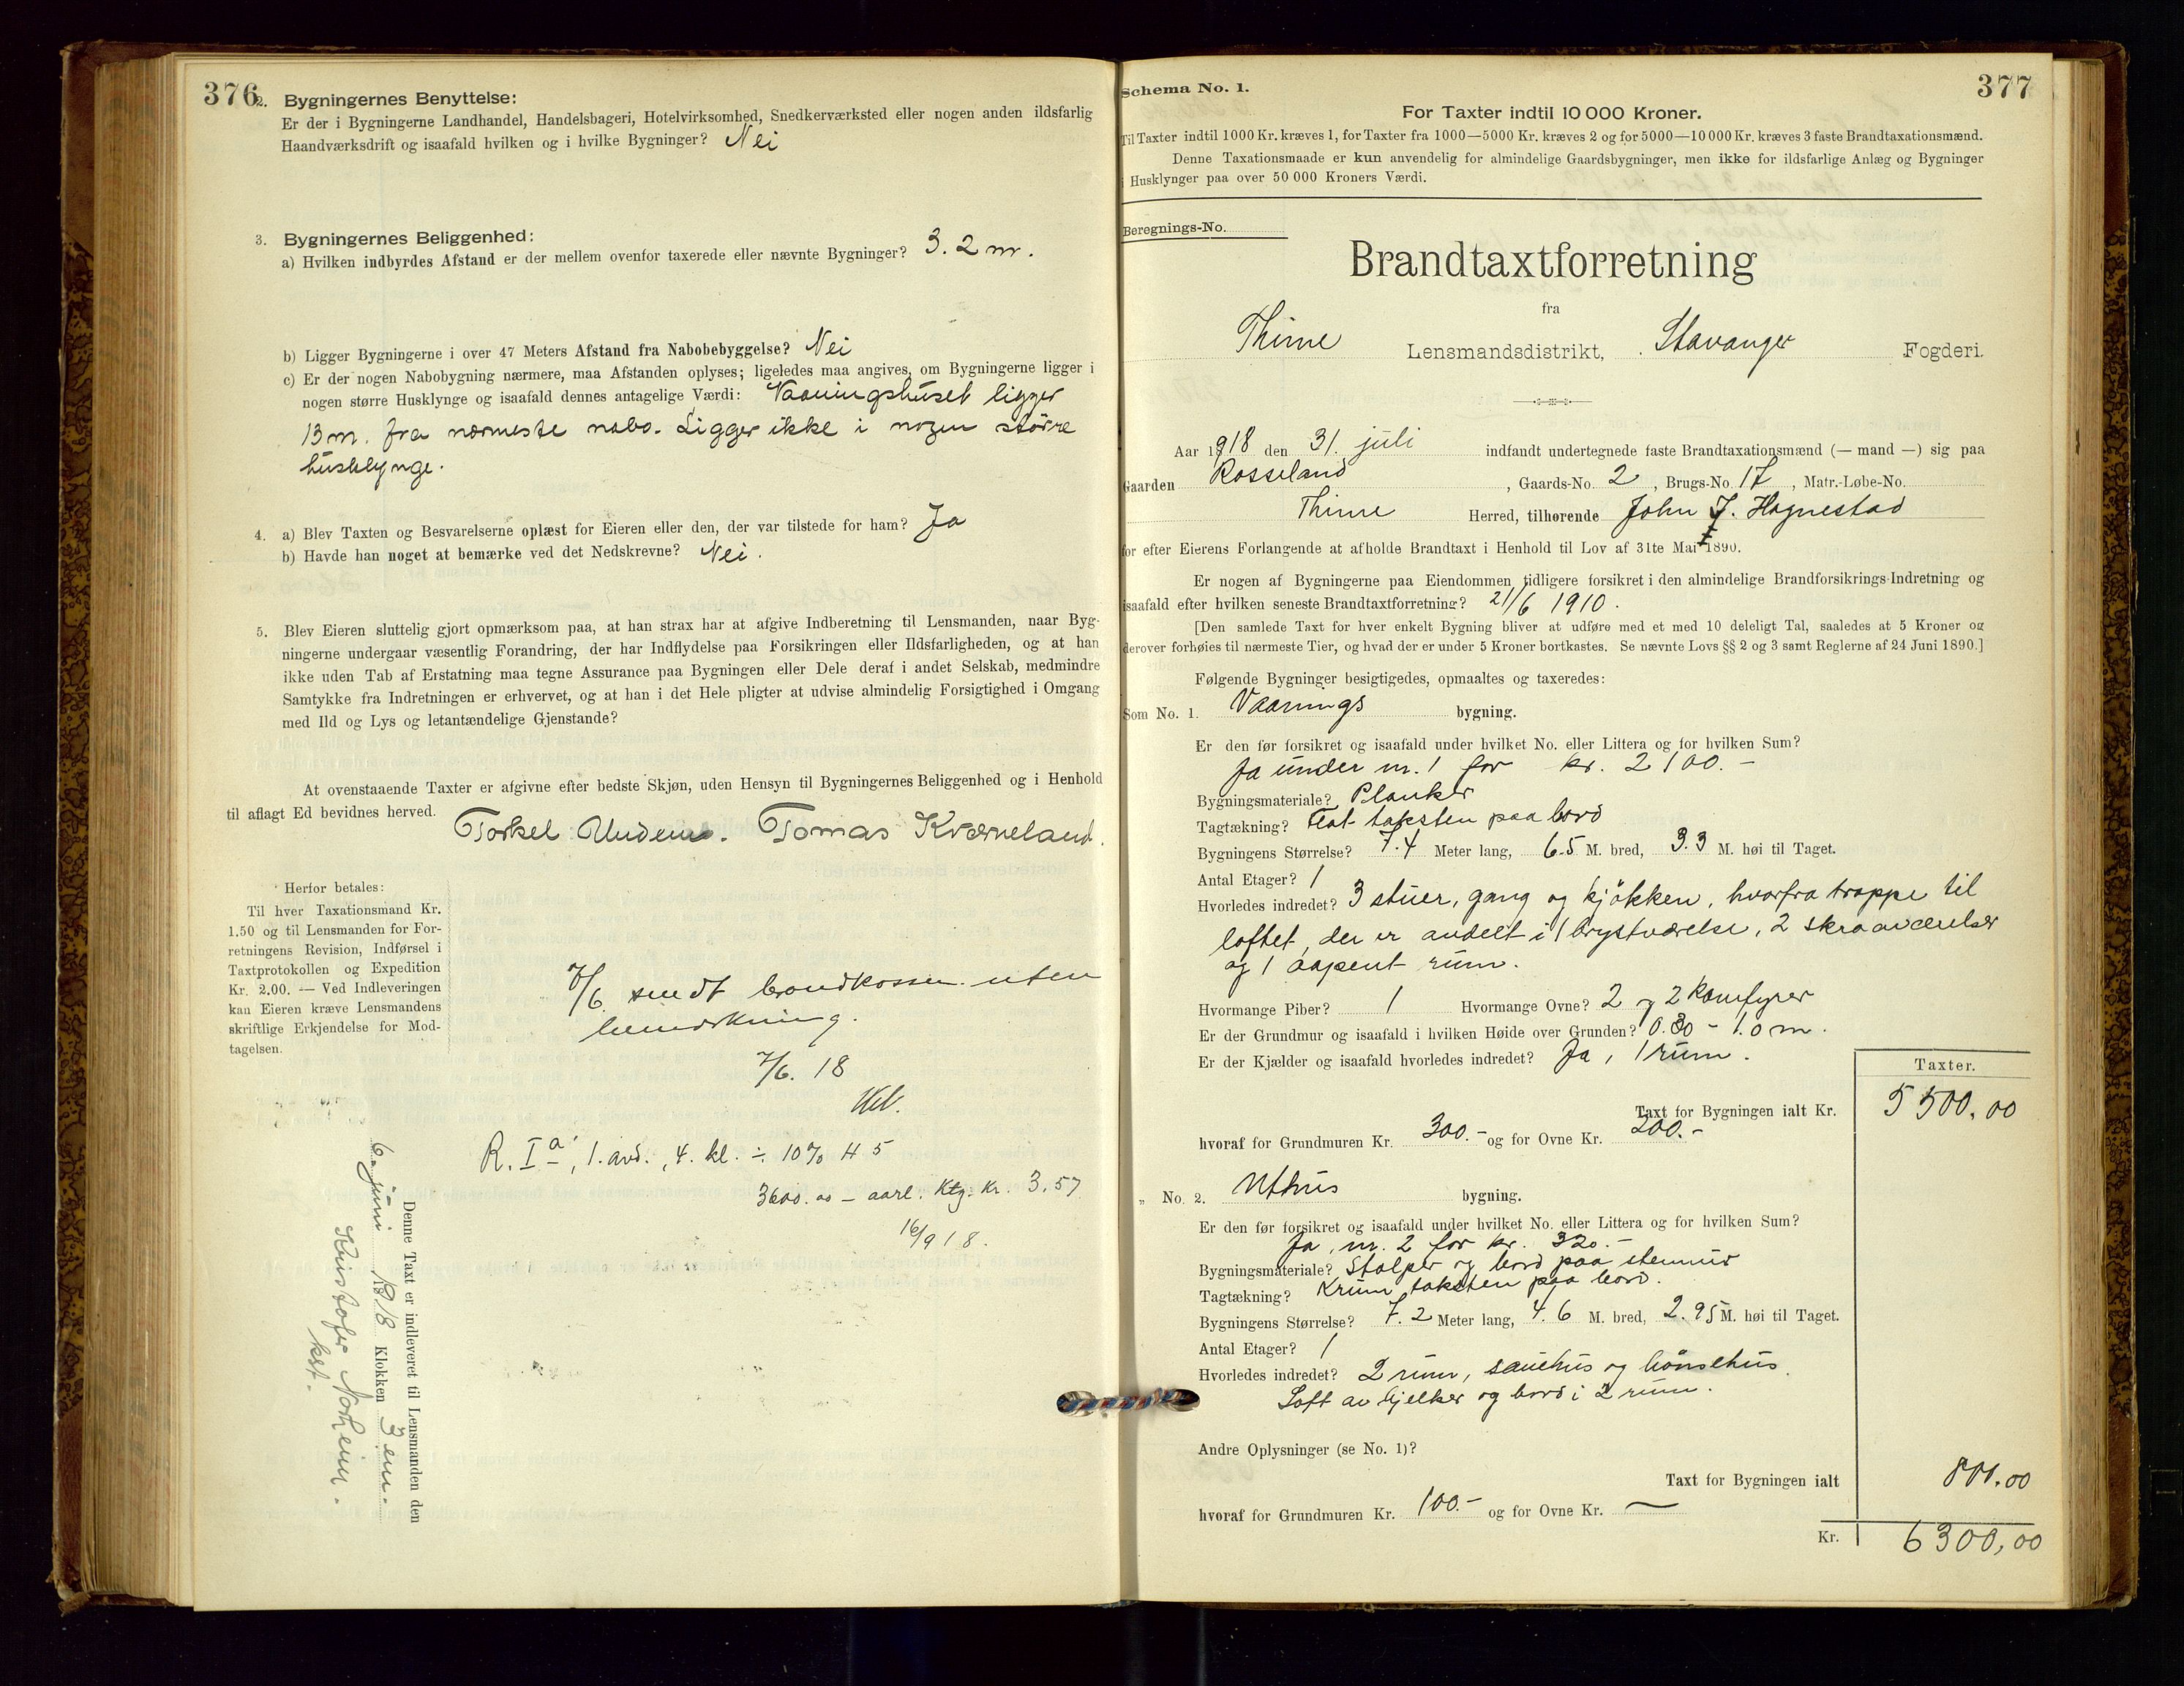 376
2. Bygningernes Benyttelse:
Er der i Bygningerne Landhandel, Handelsbageri, Hotelvirksomhed, Snedkerværksted eller nogen anden ildsfarlig
Haandværksdrift og isaafald hvilken og i hvilke Bygninger? Nei
3. Bygningernes Beliggenhed:
a) Hvilken indbyrdes Afstand er der mellem ovenfor taxerede eller nævnte Bygninger? 3.2 m.
b) Ligger Bygningerne i over 47 Meters Afstand fra Nabobebyggelse? Nei
c) Er der nogen Nabobygning nærmere, maa Afstanden oplyses; ligeledes maa angives, om Bygningerne ligger i
nogen større Husklynge og isaafald dennes antagelige Værdi: Vaaningshuset ligger
13 m. fra nærmeste nabo. Ligger ikke i nogen större
husklynge.
4. a) Blev Taxten og Besvarelserne oplæst for Eieren eller den, der var tilstede for ham? Ja
b) Havde han noget at bemærke ved det Nedskrevne? Nei.
5. Blev Eieren sluttelig gjort opmærksom paa, at han strax har at afgive Indberetning til Lensmanden, naar Byg-
ningerne undergaar væsentlig Forandring, der har Indflydelse paa Forsikringen eller Ildsfarligheden, og at han
ikke uden Tab af Erstatning maa tegne Assurance paa Bygningen eller Dele deraf i andet Selskab, medmindre
Samtykke fra Indretningen er erhvervet, og at han i det Hele pligter at udvise almindelig Forsigtighed i Omgang
med Ild og Lys og letantændelige Gjenstande?
At ovenstaaende Taxter er afgivne efter bedste Skjøn, uden Hensyn til Bygningernes Beliggenhed og i Henhold
til aflagt Ed bevidnes herved.
Torkel Undem. Tomas Kværneland.
Herfor betales:
Til hver Taxationsmand Kr.
1.50 og til Lensmanden for For-
retningens Revision, Indførsel i
Taxtprotokollen og Expedition
Kr. 2.00. — Ved Indleveringen
kan Eieren kræve Lensmandens
skriftlige Erkjendelse for Mod-
tagelsen.
7/6 sendt brandkassen uten
bemerkning.
7/6. 18
R. Ia, 1. avd., 4. kl. ÷ 10% H 5
3600.00 – aarl. Ktg. Kr. 3.57
16/9 18.
Denne Taxt er indleveret til Lensmanden den
6. juni 1918 Klokken 3 em.
Kristofer Norheim.
kst.
377
Schema No. 1.
For Taxter indtil 10 000 Kroner.
Til Taxter indtil 1000 Kr. kræves 1, for Taxter fra 1000—5000 Kr. kræves 2 og for 5000—10 000 Kr. kræves 3 faste Brandtaxationsmænd.
Denne Taxationsmaade er kun anvendelig for almindelige Gaardsbygninger, men ikke for ildsfarlige Anlæg og Bygninger
i Husklynger paa over 50 000 Kroners Værdi.
Beregnings-No.
Brandtaxtforretning
fra
Thime Lensmandsdistrikt, Stavanger Fogderi.
Aar 1918 den 31. juli indfandt undertegnede faste Brandtaxationsmænd (— mand —) sig paa
Gaarden Rosseland, Gaards-No. 2, Brugs-No. 17, Matr.-Løbe-No.
Thime Herred, tilhørende John J. Hognestad
for efter Eierens Forlangende at afholde Brandtaxt i Henhold til Lov af 31te Mai 1890.
Er nogen af Bygningerne paa Eiendommen tidligere forsikret i den almindelige Brandforsikrings-Indretning og
isaafald efter hvilken seneste Brandtaxtforretning? 21/6 1910.
[Den samlede Taxt for hver enkelt Bygning bliver at udføre med et med 10 deleligt Tal, saaledes at 5 Kroner og
derover forhøies til nærmeste Tier, og hvad der er under 5 Kroner bortkastes. Se nævnte Lovs §§ 2 og 3 samt Reglerne af 24 Juni 1890.]
Følgende Bygninger besigtigedes, opmaaltes og taxeredes:
Som No. 1. Vaanings bygning.
Er den før forsikret og isaafald under hvilket No. eller Littera og for hvilken Sum?
Ja under nr. 1 for kr. 2100.-
Bygningsmateriale? Planker
Tagtækning? Flat taksten paa bord
Bygningens Størrelse? 7.4 Meter lang, 6.5 M. bred, 3.3 M. høi til Taget.
Antal Etager? 1
Hvorledes indredet? 3 stuer, gang og kjökken, hvorfra trappe til
loftet, der er avdelt i 1 brystværelse, 2 skraaværelser
og 1 aapent rum.
Hvormange Piber? 1 Hvormange Ovne? 2 og 2 komfyrer
Er der Grundmur og isaafald i hvilken Høide over Grunden? 0.30 - 1.0 m.
Er der Kjælder og isaafald hvorledes indredet? Ja, 1 rum.
Taxter.
Taxt for Bygningen ialt Kr. 5500.00
hvoraf for Grundmuren Kr. 300.- og for Ovne Kr. 200.-
„ No. 2. Uthus bygning.
Er den før forsikret og isaafald under hvilket No. eller Littera og for hvilken Sum?
Ja, nr. 2 for kr. 320.-
Bygningsmateriale? Stolper og bord paa stenmur
Tagtækning? Krum taksten paa bord.
Bygningens Størrelse? 7.2 Meter lang, 4.6 M. bred, 2.95 M. høi til Taget.
Antal Etager? 1
Hvorledes indredet? 2 rum, sauehus og hönsehus.
Loft av bjelker og bord i 2 rum.
Andre Oplysninger (se No. 1)?
Taxt for Bygningen ialt 800.00
hvoraf for Grundmuren Kr. 100.- og for Ovne Kr. —
Kr. 6300,00